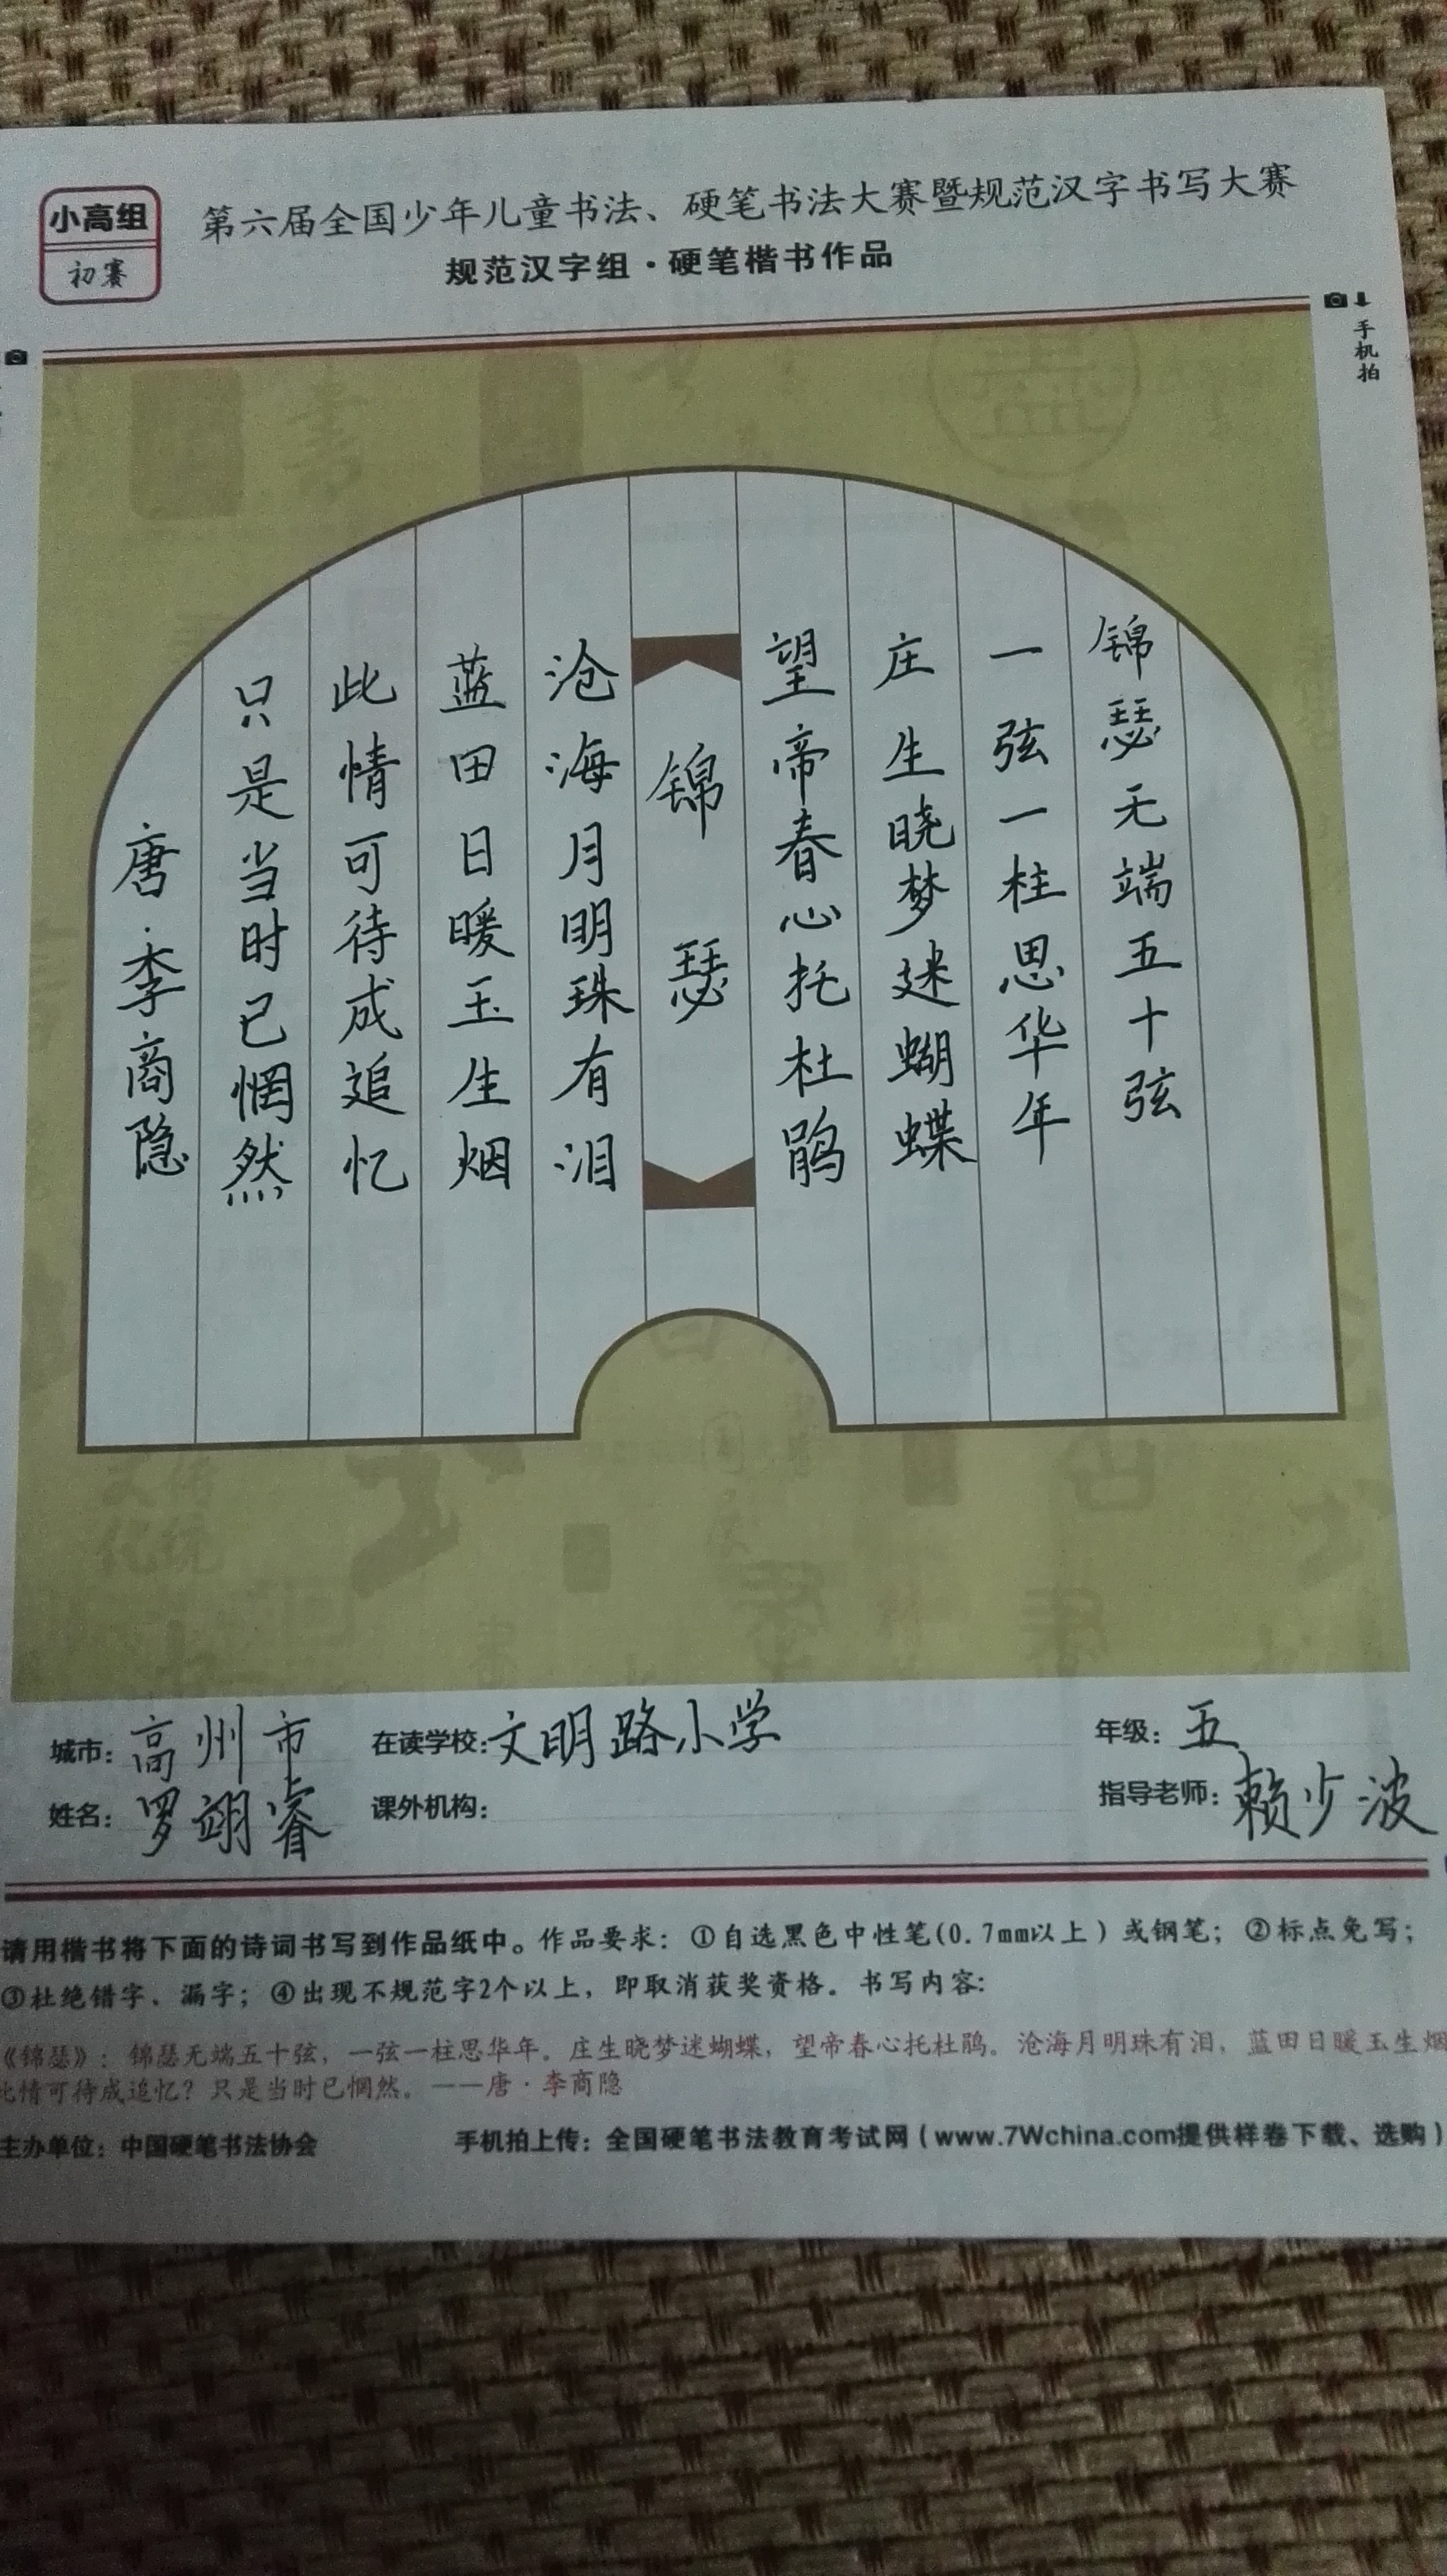 小高组
初赛
第六届全国少年儿童书法、硬笔书法大赛暨规范汉字书写大赛
规范汉字组·硬笔楷书作品
手机拍
锦瑟无端五十弦
一弦一柱思华年
庄生晓梦迷蝴蝶
望帝春心托杜鹃
锦瑟
沧海月明珠有泪
蓝田日暖玉生烟
此情可待成追忆
只是当时已惘然
唐·李商隐
城市：高州市 在读学校：文明路小学 年级：五
姓名：罗翊睿 课外机构： 指导老师：赖少波
请用楷书将下面的诗词书写到作品纸中。作品要求：①自选黑色中性笔(0.7mm以上）或钢笔；②标点免写；
③杜绝错字、漏字；④出现不规范字2个以上，即取消获奖资格。书写内容:
《锦瑟》：锦瑟无端五十弦，一弦一柱思华年。庄生晓梦迷蝴蝶，望帝春心托杜鹃。沧海月明珠有泪，蓝田日暖玉生烟
此情可待成追忆？只是当时已惘然。——唐·李商隐
主办单位：中国硬笔书法协会 手机拍上传：全国硬笔书法教育考试网（www.7Wchina.com提供样卷下载、选购）